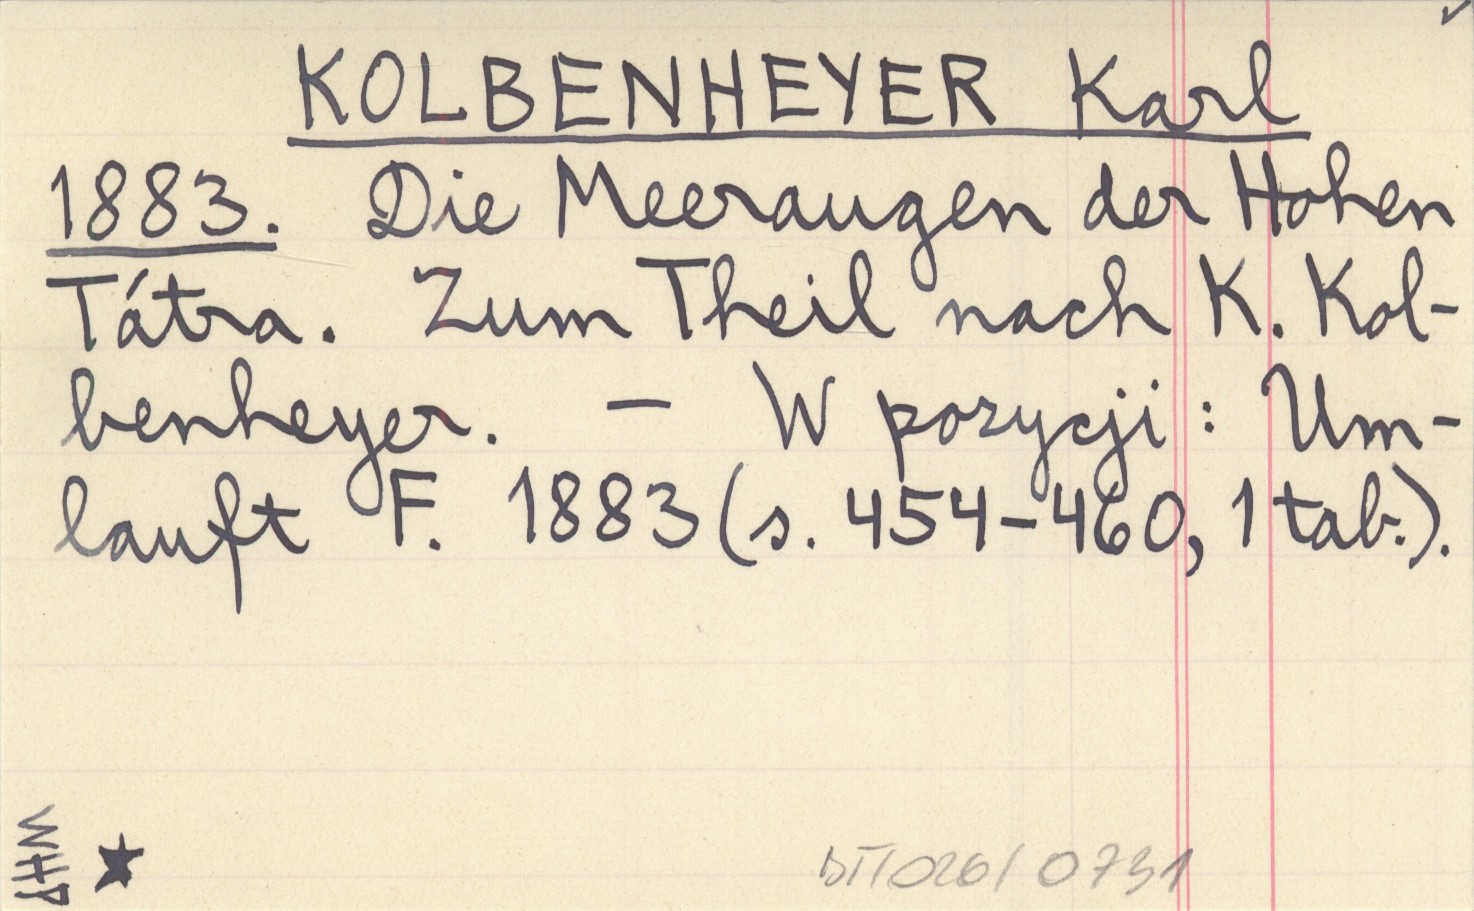 KOLBENHEYER Karl
1883. Die Meeraugen der Hohen
Tátra. Zum Theil nach K. Kol-
benheyer. — W pozycji: Um-
lauft F. 1883 (s. 454-460, 1 tab.).
WHP
BT/026/0731